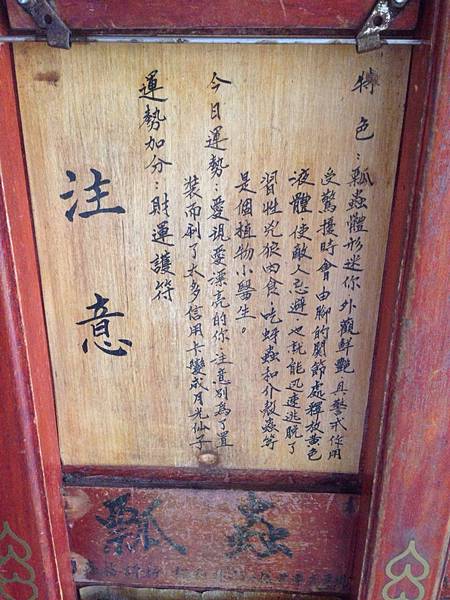 特色：瓢蟲體形迷你外觀鮮艷具警戒作用
受驚擾時會由腳的關節處釋放黃色
液體使敵人忌避也就能迅速逃脫了
習性兇狠肉食吃蚜蟲和介殼蟲等
是個植物小醫生。
今日運勢：愛現愛漂亮的你注意別為了置
裝而刷了太多信用卡變成月光仙子
運勢加分：財運護符
注意
瓢蟲